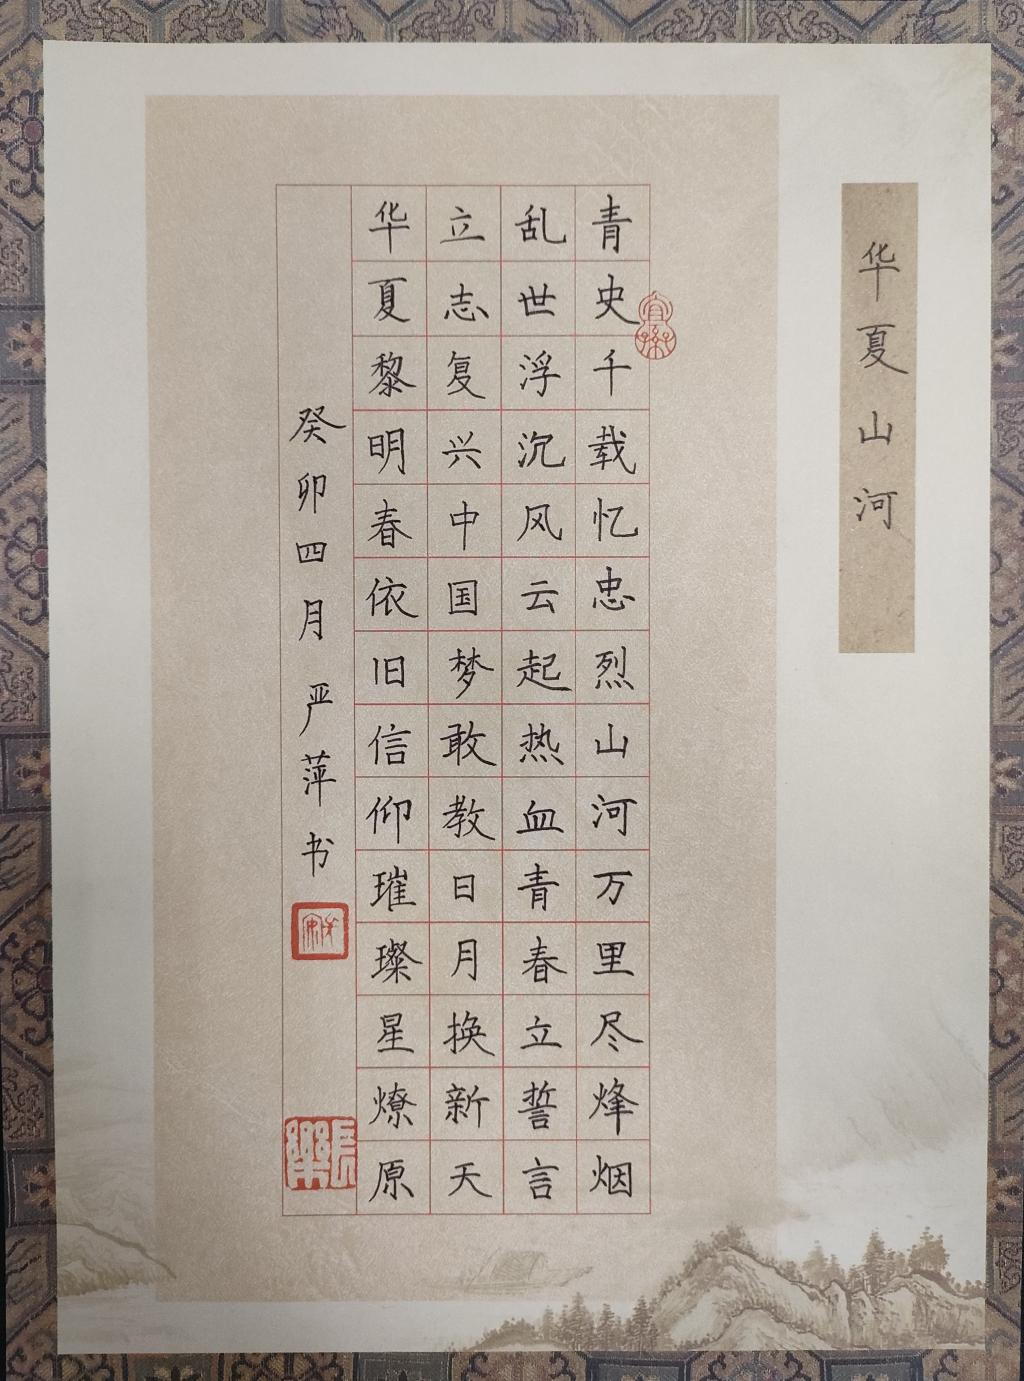 华夏山河
青史千载忆忠烈山河万里尽烽烟
乱世浮沉风云起热血青春立誓言
立志复兴中国梦敢教日月换新天
华夏黎明春依旧信仰璀璨星燎原
癸卯四月严萍书